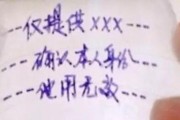 仅提供XXX
确认本人身份
他用无效